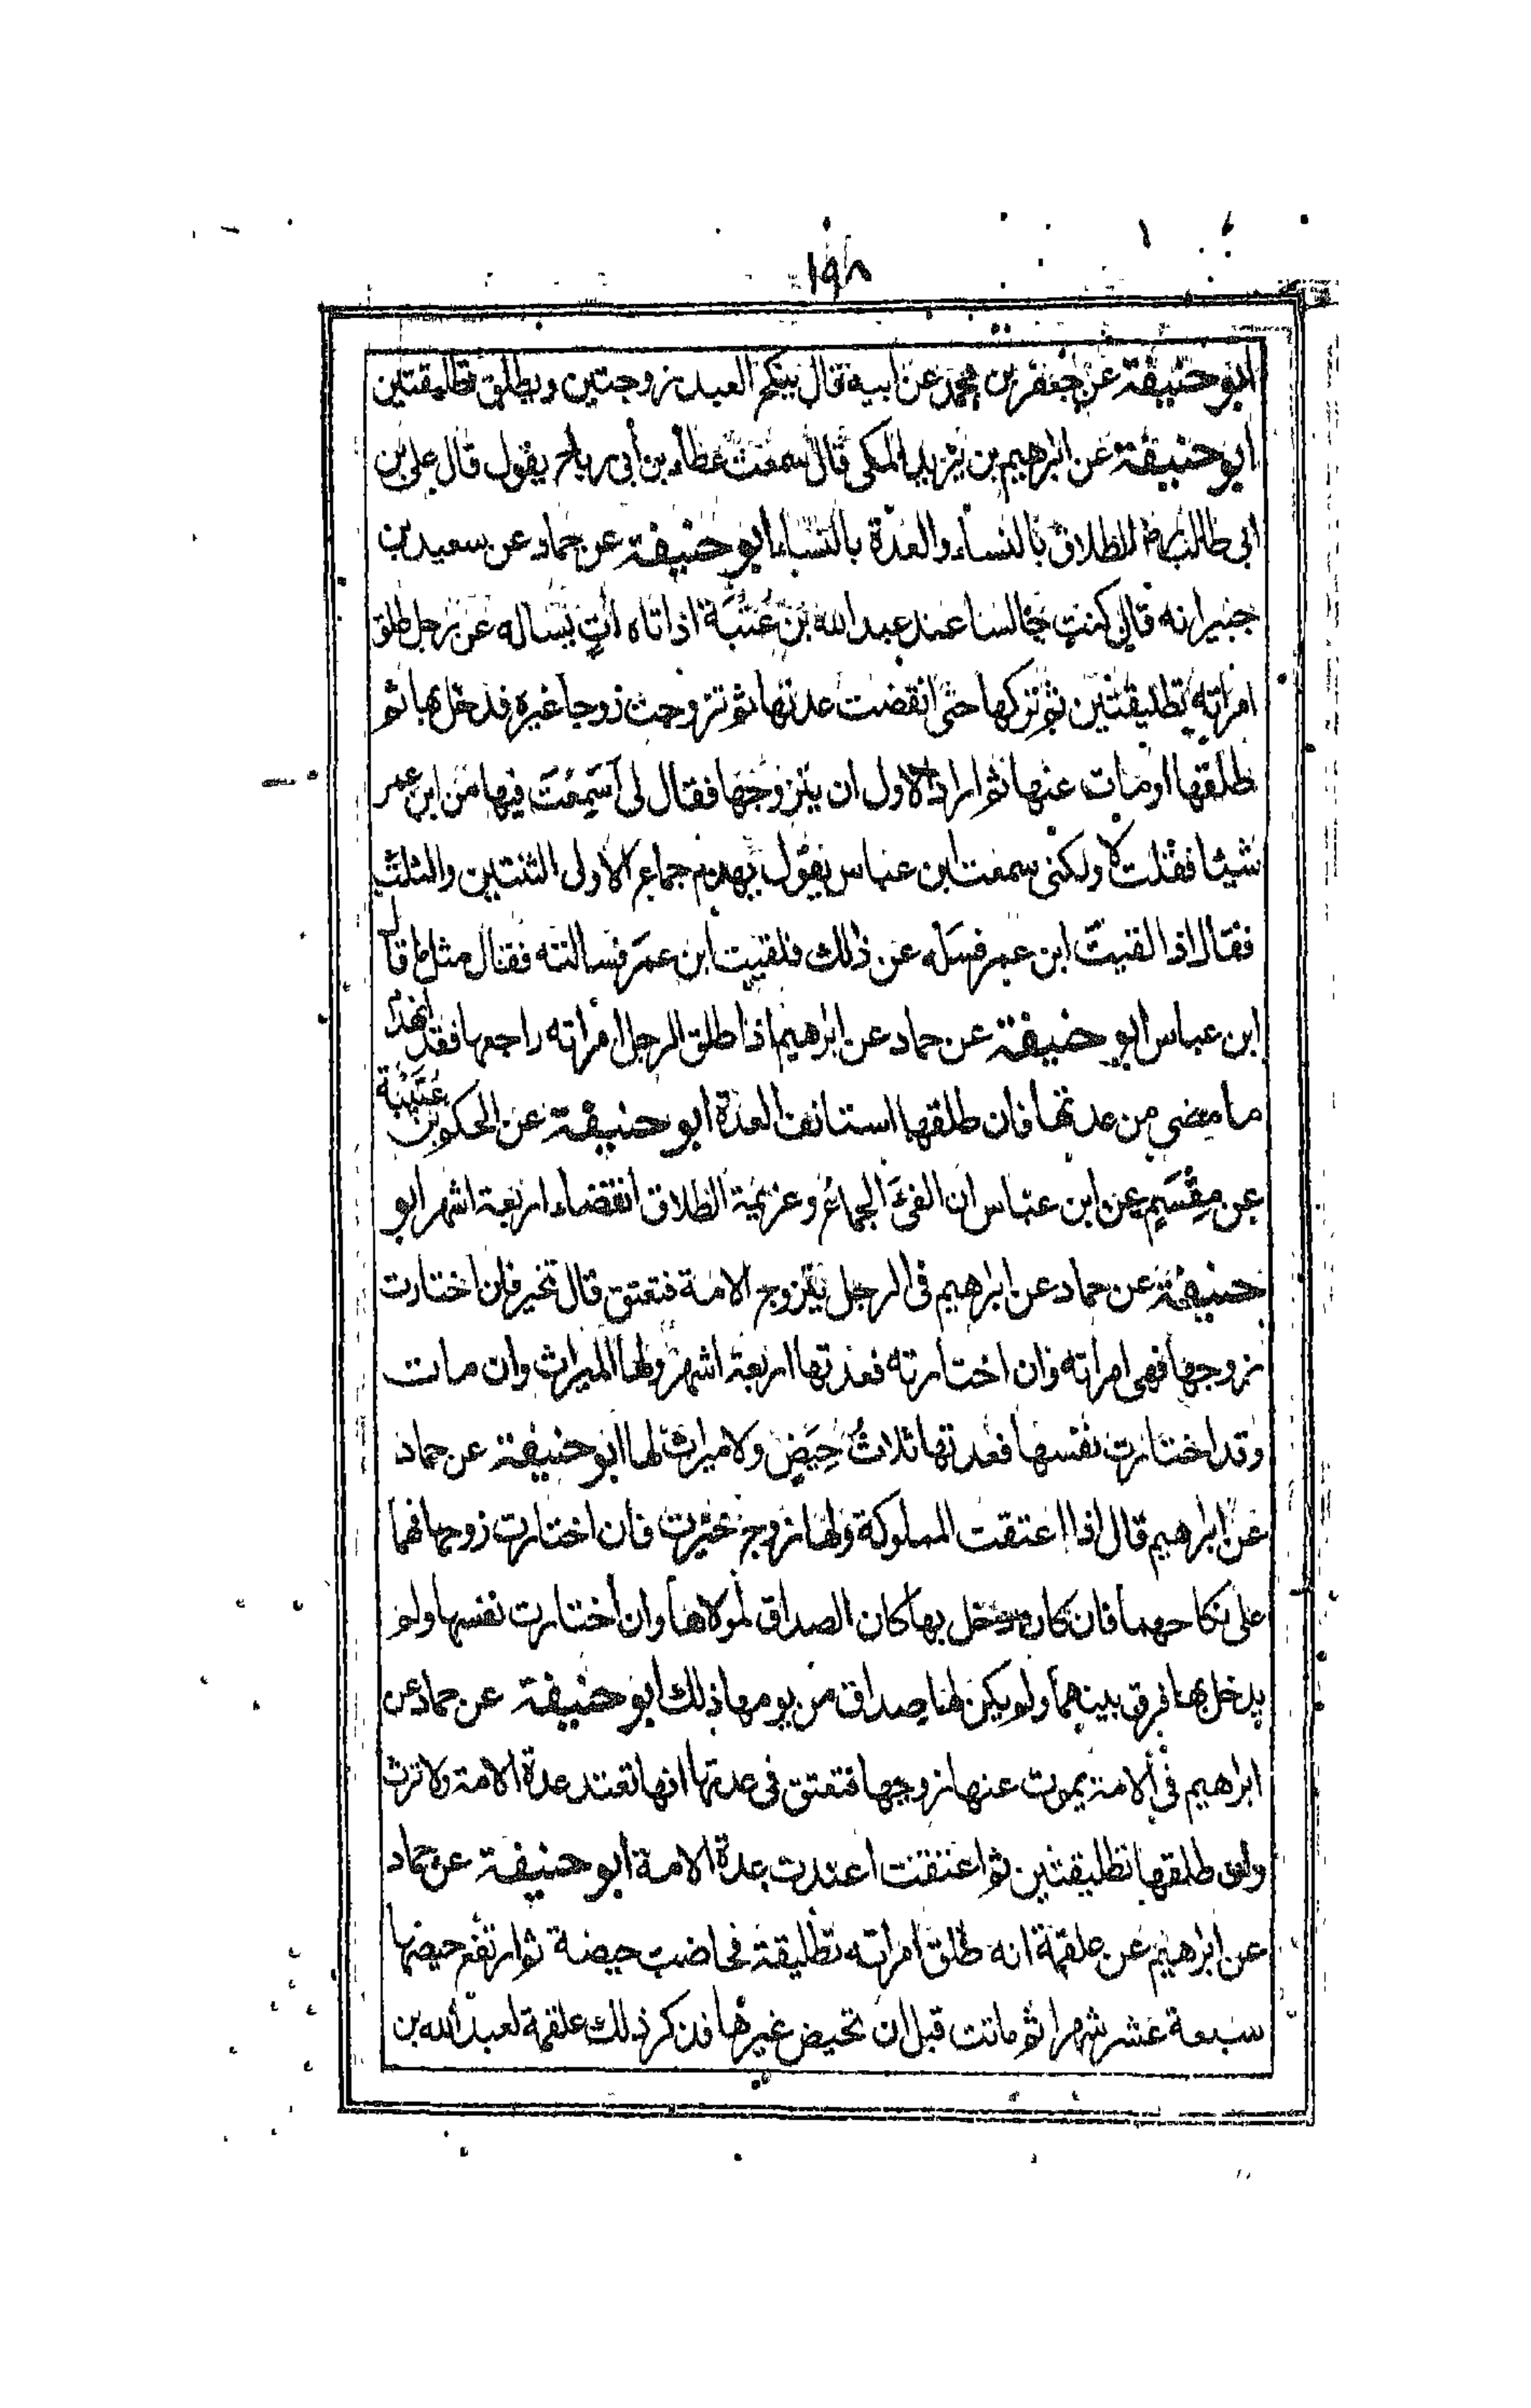 ١٩٨
ابو حنيفة عن جعفر بن محمد عن ابيه قال ينكح العبد زوجتين ويطلق تطليقتين
ابو حنيفة عن ابرهيم بن يزيد المكى قال سمعت عطاء بن أبى رباح يقول قال على بن
ابى طالب رض الطلاق بالنساء والعدة بالنساء ابو حنيفة عن حماد عن سعيد بن
جبير انه قال كنت جالسا عند عبد الله بن عُتْبَة اذا تاه اٰتٍ يساله عن رجل طلق
امراته تطليقتين ثم تركها حتى انقضت عدتها ثم تزوجت زوجا غيره فدخل بها ثم
طلقها او مات عنها ثم اراد الاول ان يتزوجها فقال لى أسَمِعْتَ فيها من ابن عمر
شيئا فقلت لا ولكنى سمعت ابن عباس يقول يهدم جماع الاولى الثنتين والثلث
فقال اذا لقيتَ ابن عمر فسَله عن ذلك فلقيت ابن عمر فسالته فقال مثل ما قال
ابن عباس ابو حنيفة عن حماد عن ابرهيم اذا طلق الرجل امراته راجعها فقد انهدم
ما مضى من عدتها فان طلقها استانف العدة ابو حنيفة عن الحكم بن عُتَيْبَة
عن مِقْسَم عن ابن عباس ان الفئ الجماع وعزيمة الطلاق انقضاء اربعة اشهر ابو
حنيفة عن حماد عن ابرهيم فى الرجل يتزوج الامة فتعتق قال تخير فان اختارت
زوجها فهى امراته وان اختارته فعدتها اربعة اشهر ولها الميراث وان مات
وقد اختارت نفسها فعدتها ثلاثُ حِيَضٍ ولا ميراث لها ابو حنيفة عن حماد
عن ابرهيم قال اذا اعتقت المملوكة ولها زوج خيرت فان اختارت زوجها فهما
على نكاحهما فان كان دخل بها كان الصداق لمولاها وان اختارت نفسها ولم
يدخل بها فرق بينهما ولم يكن لها صداق من يومها ذلك ابو حنيفة عن حماد عن
ابراهيم فى الامة يموت عنها زوجها فتعتق فى عدتها انها تعتد عدة الامة ولا ترث
ولو طلقها تطليقتين ثم اعتقت اعتدت عدة الامة ابو حنيفة عن حماد
عن ابرهيم عن علقمة انه طلق امراته تطليقة فحاضت حيضة ثم ارتفع حيضها
سبعة عشر شهرا ثم ماتت قبل ان تحيض غيرها فذكر ذلك علقمة لعبد الله بن